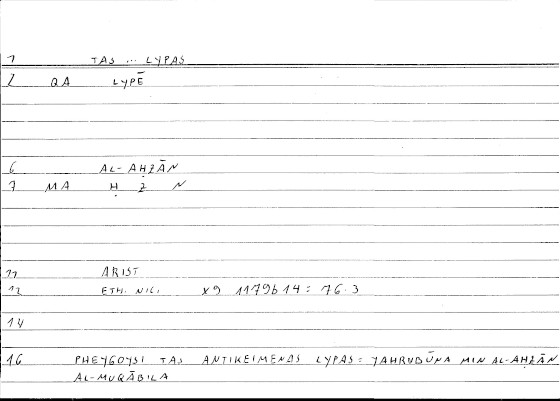 1 TAS ... LYPAS
2 QA LYPĒ
6 AL-AḤZĀN
7 MA Ḥ Z N
11 ARIST
12 ETH. NIC. X9 1179b14 = 76.3
14
16 PHEYGOYSI TAS ANTIKEIMENAS LYPAS = YAHRUBŪNA MIN AL-AḤZĀN
AL-MUQĀBILA